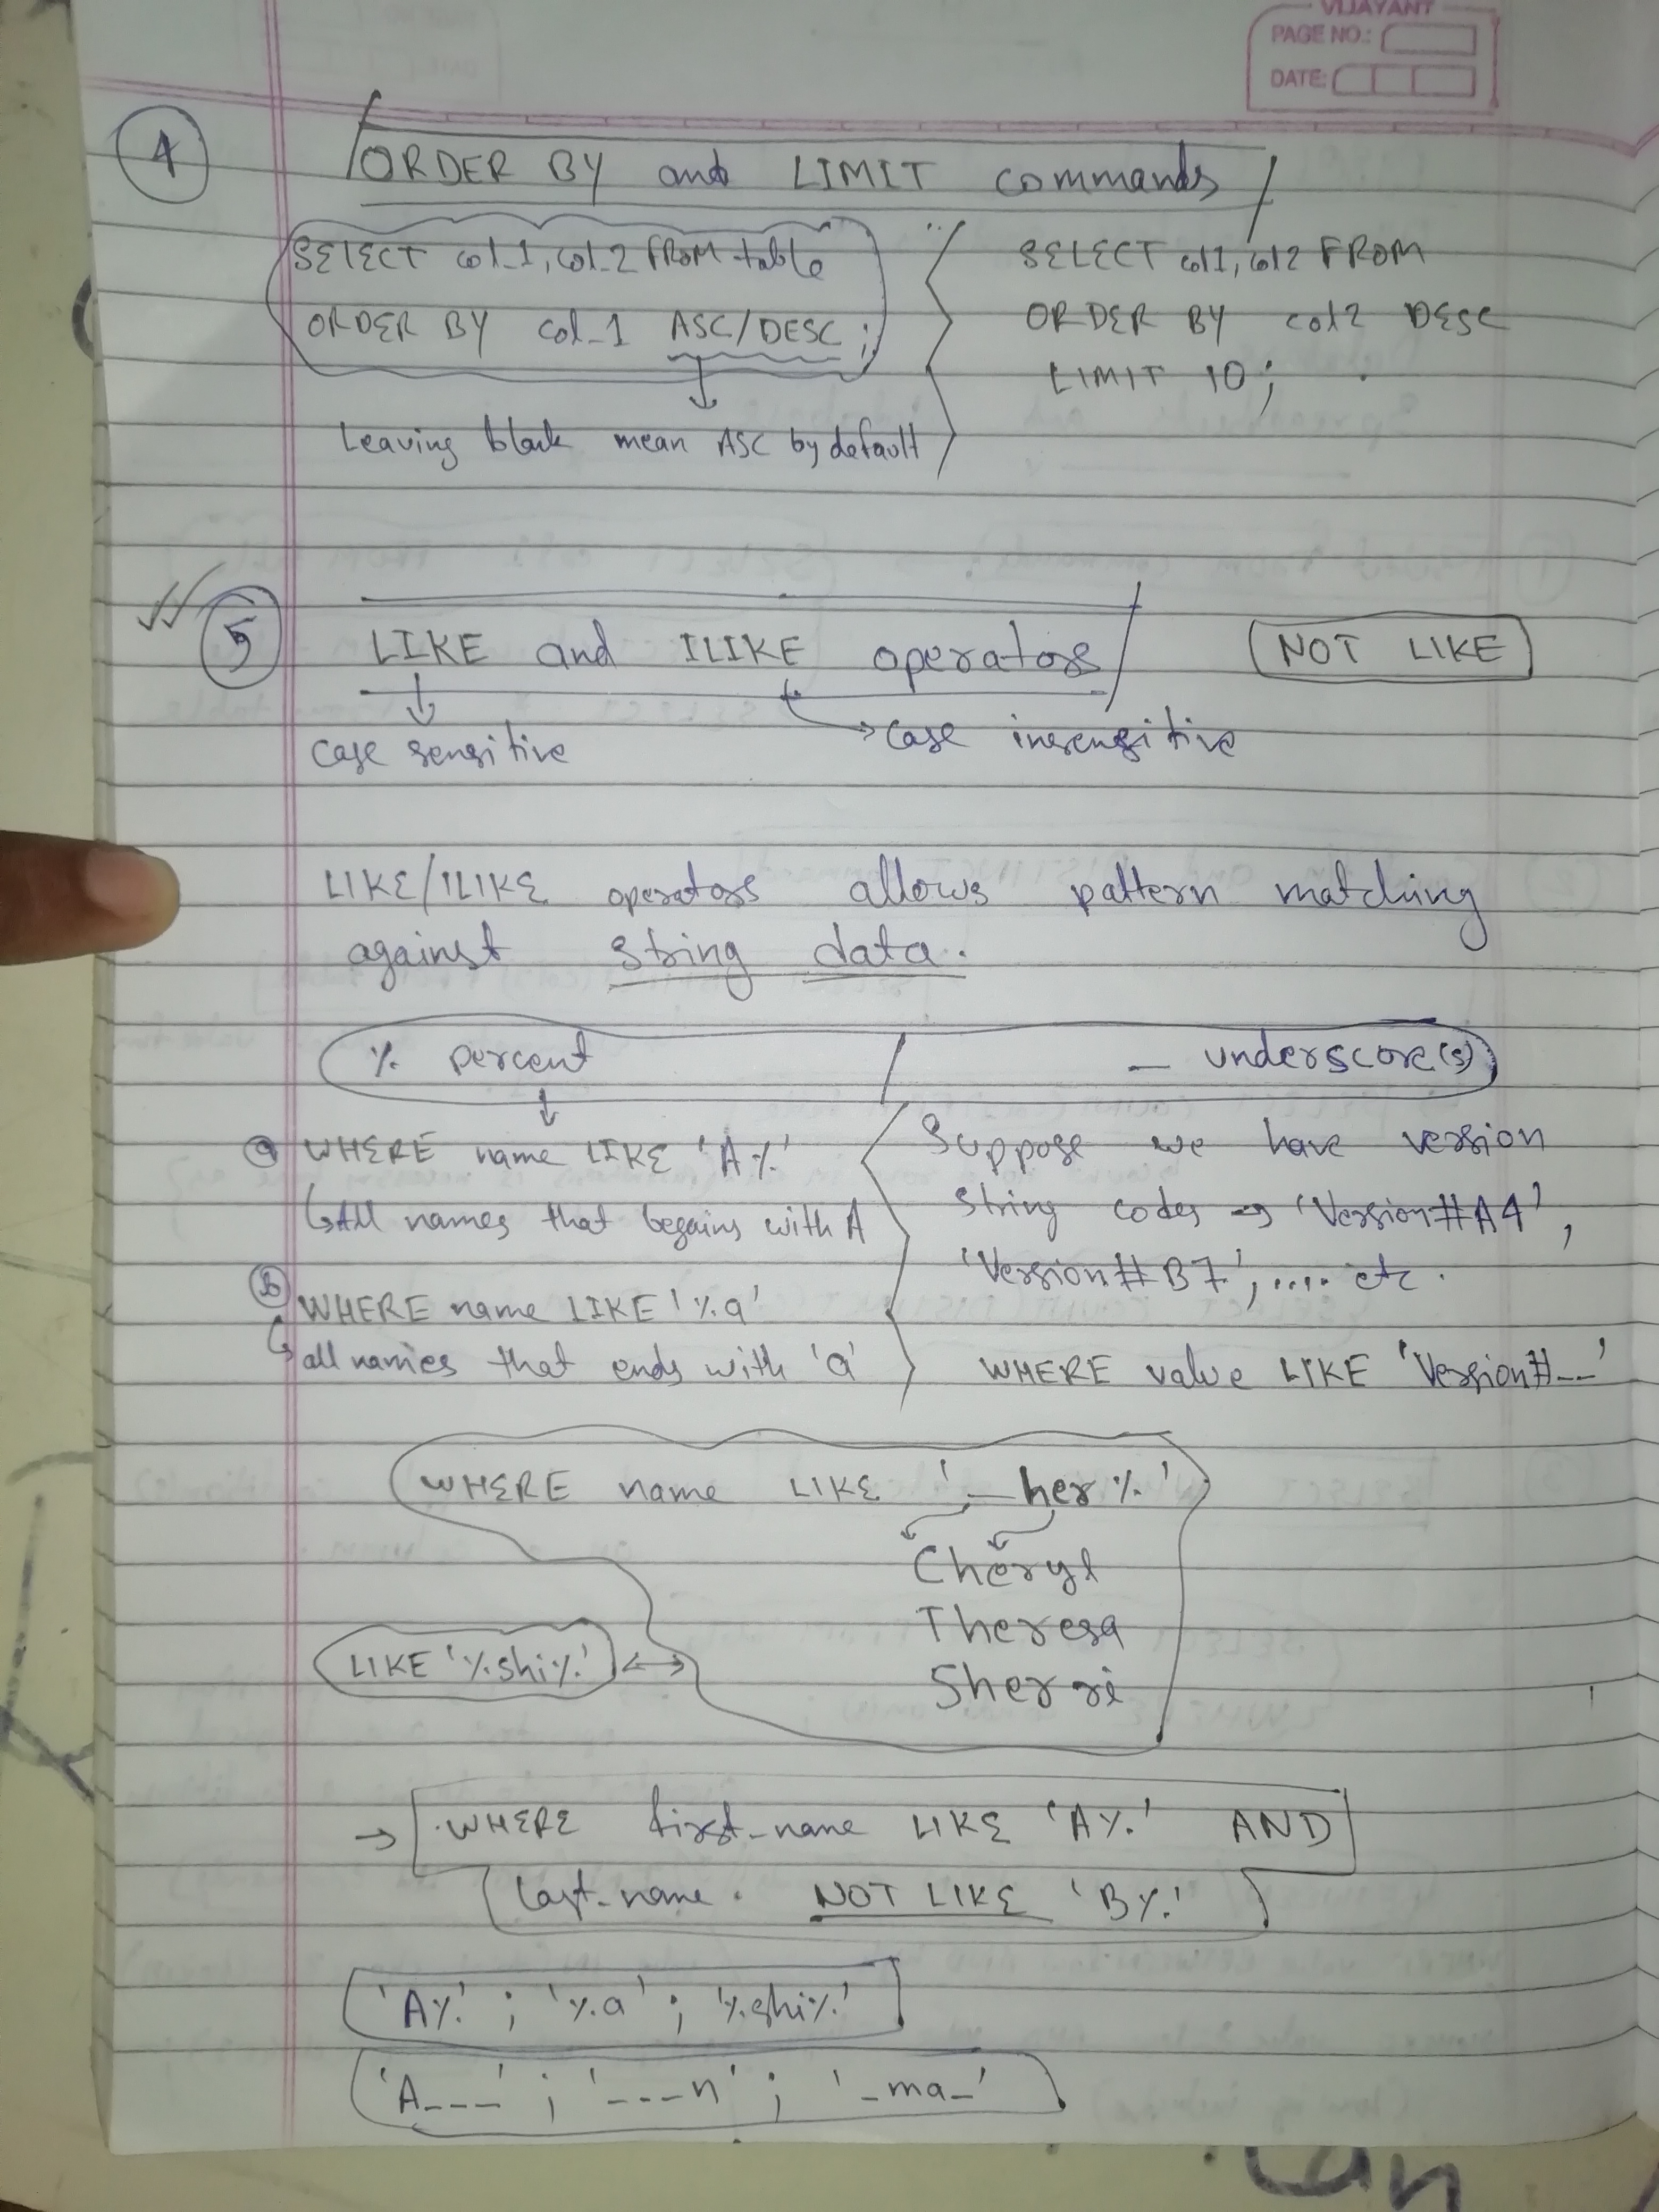 VIJAYANT
PAGE NO.:
DATE:
4
ORDER BY and LIMIT commands
SELECT col_1, col_2 FROM table
ORDER BY col_1 ASC/DESC ;
Leaving blank mean ASC by default
SELECT col1, col2 FROM
ORDER BY col2 DESC
LIMIT 10;
5
LIKE and ILIKE operators
NOT LIKE
case sensitive
case insensitive
LIKE/ILIKE operators allows pattern matching
against string data.
% percent / _ underscore(s)
a WHERE name LIKE 'A%'
All names that begains with A
b WHERE name LIKE '%a'
all names that ends with 'a'
Suppose we have version
string codes → 'Version#A4',
'Version#B7', .... etc.
WHERE value LIKE 'Version#__'
WHERE name LIKE '_her%'
Cheryl
Theresa
Sherri
LIKE '%shi%'
→ WHERE first_name LIKE 'A%' AND
last_name. NOT LIKE 'B%'
'A%' ; '%a' ; '%shi%'
'A___' ; '___n' ; '_ma_'